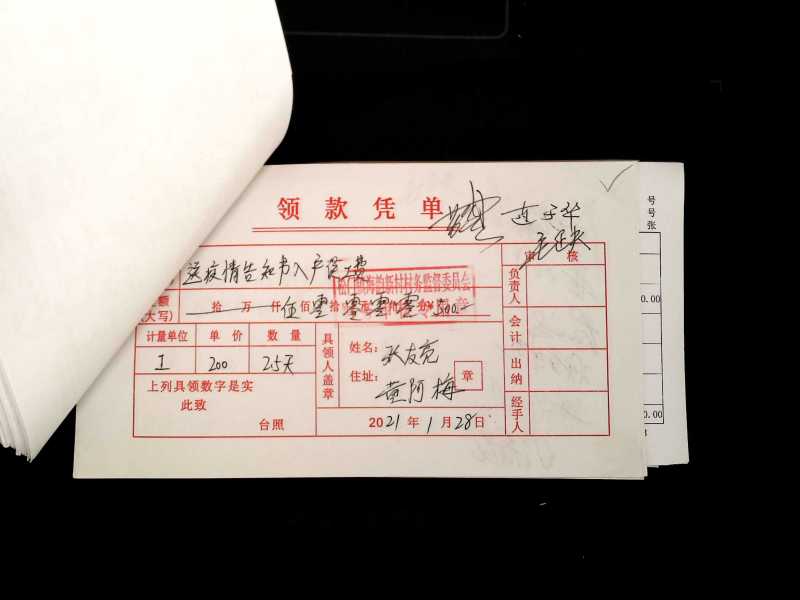 领款凭单
连子华
审 核
送疫情告知书入户误工费
额
(大写)
拾 万 仟 伍 佰 零 拾 零 零 零 ¥500.-
村务监督委员会
计量单位 单价 数量
工 200 2.5天
上列具领数字是实
此致
台照
具领人盖章
姓名: 张友亮
住址: 黄阿梅
章
2021年1月28日
负责人
会计
出纳
经手人
号
号
张
0.00
0.00